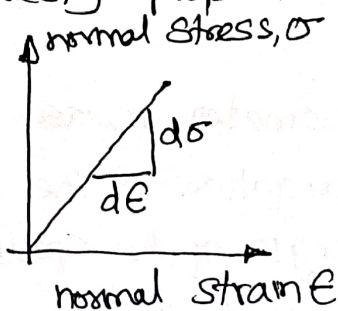 normal stress, σ
dσ
dϵ
normal strain ϵ